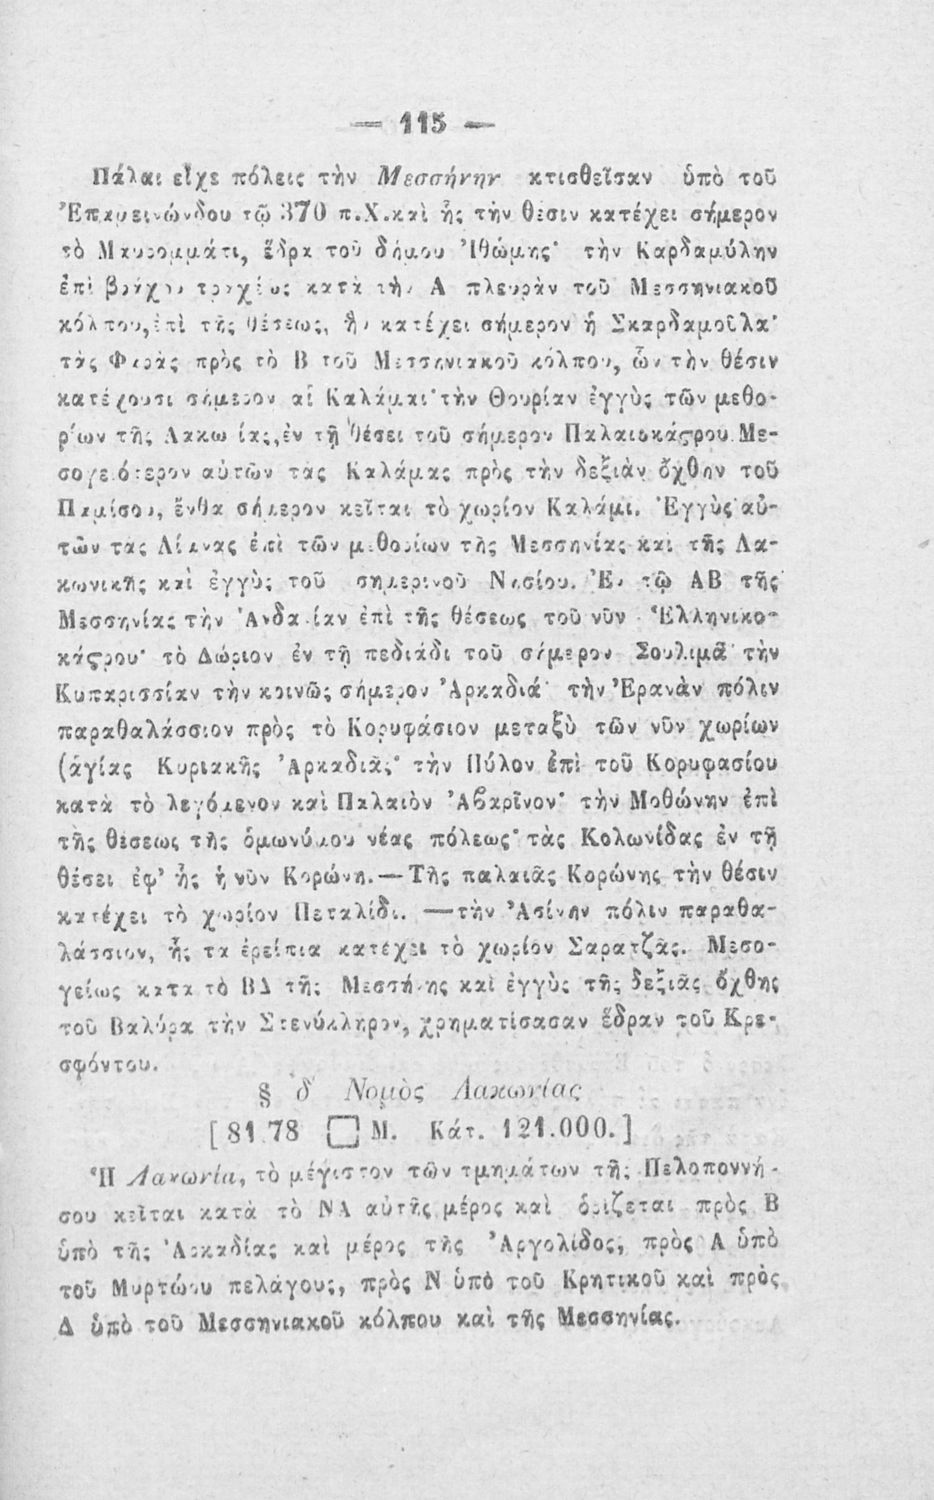 — 115 —
Πάλαι εἶχε πόλεις τὴν Μεσσήνην κτισθεῖσαν ὑπὸ τοῦ
Ἐπαμεινώνδου τῷ 370 π.Χ. καὶ ἧς τὴν θέσιν κατέχει σήμερον
τὸ Μαυρομμάτι, ἕδρα τοῦ δήμου Ἰθώμης· τὴν Καρδαμύλην
ἐπὶ βράχου τραχέως κατὰ τὴν Α πλευρὰν τοῦ Μεσσηνιακοῦ
κόλπου, ἐπὶ τῆς θέσεως, ἣν κατέχει σήμερον ἡ Σκαρδαμοῦλα·
τὰς Φερὰς πρὸς τὸ Β τοῦ Μεσσηνιακοῦ κόλπου, ὧν τὴν θέσιν
κατέχουσι σήμερον αἱ Καλάμαι· τὴν Θουρίαν ἐγγὺς τῶν μεθο-
ρίων τῆς Λακωνίας, ἐν τῇ θέσει τοῦ σήμερον Παλαιοκάςρου. Με-
σογειότερον αὐτῶν τὰς Καλάμας πρὸς τὴν δεξιὰν ὄχθην τοῦ
Παμίσου, ἔνθα σήμερον κεῖται τὸ χωρίον Καλάμι. Ἐγγὺς αὐ-
τῶν τὰς Λίμνας ἐπὶ τῶν μεθορίων τῆς Μεσσηνίας καὶ τῆς Λα-
κωνικῆς καὶ ἐγγὺς τοῦ σημερινοῦ Νησίου. Ἐν τῷ ΑΒ τῆς
Μεσσηνίας τὴν Ἀνδανίαν ἐπὶ τῆς θέσεως τοῦ νῦν Ἑλληνικο-
κάςρου· τὸ Δώριον ἐν τῇ πεδιάδι τοῦ σήμερον Σουλιμᾶ· τὴν
Κυπαρισσίαν τὴν κοινῶς σήμερον Ἀρκαδιά· τὴν Ἐρανὰν πόλιν
παραθαλάσσιον πρὸς τὸ Κορυφάσιον μεταξὺ τῶν νῦν χωρίων
(ἁγίας Κυριακῆς Ἀρκαδιᾶς· τὴν Πύλον ἐπὶ τοῦ Κορυφασίου
κατὰ τὸ λεγόμενον καὶ Παλαιὸν Ἀβαρῖνον· τὴν Μοθώνην ἐπὶ
τῆς θέσεως τῆς ὁμωνύμου νέας πόλεως· τὰς Κολωνίδας ἐν τῇ
θέσει ἐφ' ἧς ἡ νῦν Κορώνη.—Τῆς παλαιᾶς Κορώνης τὴν θέσιν
κατέχει τὸ χωρίον Πεταλίδι. —τὴν Ἀσίνην πόλιν παραθα-
λάσσιον, ἧς τὰ ἐρείπια κατέχει τὸ χωρίον Σαρατζᾶς. Μεσο-
γείως κατὰ τὸ ΒΔ τῆς Μεσσήνης καὶ ἐγγὺς τῆς δεξιᾶς ὄχθης
τοῦ Βαλύρα τὴν Στενύκληρον, χρηματίσασαν ἕδραν τοῦ Κρε-
σφόντου.
§ δ' Νομὸς Λακωνίας
[81.78 □ Μ. Κάτ. 121.000.]
Ἡ Λακωνία, τὸ μέγιστον τῶν τμημάτων τῆς Πελοποννή-
σου κεῖται κατὰ τὸ ΝΑ αὐτῆς μέρος καὶ ὁρίζεται πρὸς Β
ὑπὸ τῆς Ἀρκαδίας καὶ μέρος τῆς Ἀργολίδος, πρὸς Α ὑπὸ
τοῦ Μυρτώου πελάγους, πρὸς Ν ὑπὸ τοῦ Κρητικοῦ καὶ πρὸς
Δ ὑπὸ τοῦ Μεσσηνιακοῦ κόλπου καὶ τῆς Μεσσηνίας.